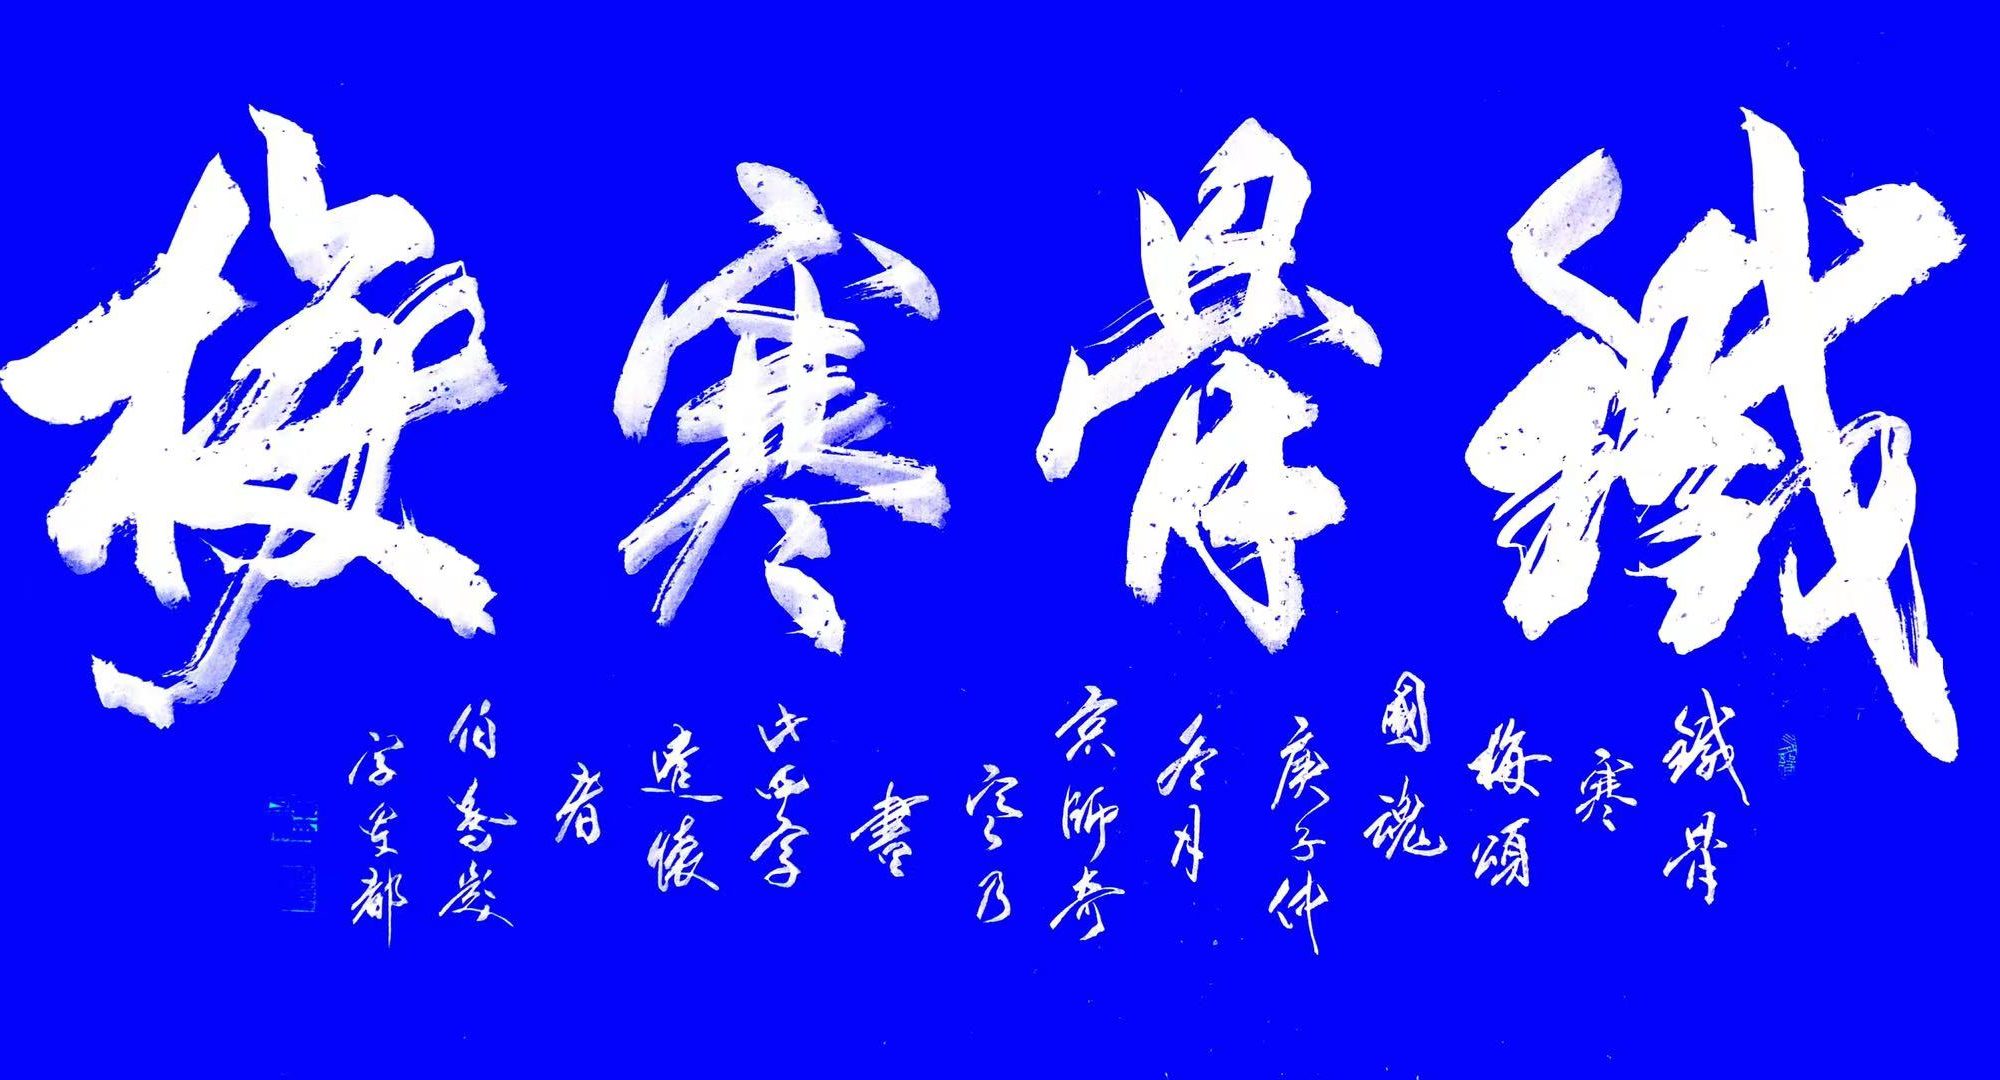 鐵骨寒梅
鐵骨
寒
梅頌
國魂
庚子仲
冬月
京師奇
寒乃
書
此四字
遣懷
者
伯喬嵗
字京都